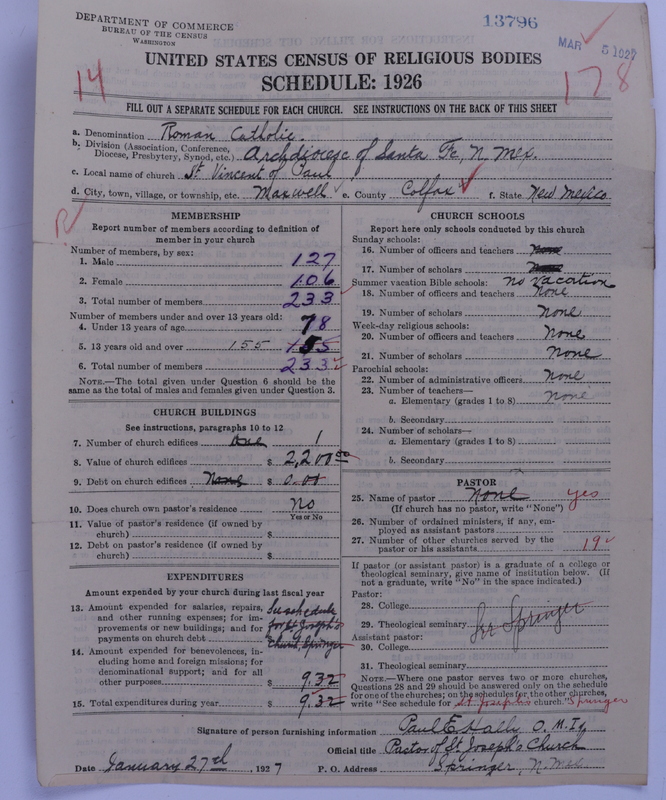 DEPARTMENT OF COMMERCE
BUREAU OF THE CENSUS
WASHINGTON
13796
MAR 5 1927
UNITED STATES CENSUS OF RELIGIOUS BODIES
SCHEDULE: 1926
14
178
FILL OUT A SEPARATE SCHEDULE FOR EACH CHURCH. SEE INSTRUCTIONS ON THE BACK OF THIS SHEET
a. Denomination Roman Catholic.
b. Division (Association, Conference, Diocese, Presbytery, Synod, etc.) Archdiocese of Santa Fe, N. Mex.
c. Local name of church St. Vincent of Paul
d. City, town, village, or township, etc. Maxwell e. County Colfax f. State New Mexico
R
MEMBERSHIP
Report number of members according to definition of
member in your church
Number of members, by sex:
1. Male 127
2. Female 106
3. Total number of members 233
Number of members under and over 13 years old:
4. Under 13 years of age 78
5. 13 years old and over 155 155
6. Total number of members 233
NOTE.—The total given under Question 6 should be the
same as the total of males and females given under Question 3.
CHURCH BUILDINGS
See instructions, paragraphs 10 to 12
7. Number of church edifices One 1
8. Value of church edifices $ 2,200.00
9. Debt on church edifices None $ 0.00
10. Does church own pastor's residence No
Yes or No
11. Value of pastor's residence (if owned by
church) $
12. Debt on pastor's residence (if owned by
church) $
EXPENDITURES
Amount expended by your church during last fiscal year
13. Amount expended for salaries, repairs, See schedule
and other running expenses; for im-
provements or new buildings; and for for St. Joseph's
payments on church debt Church, Springer
14. Amount expended for benevolences, in-
cluding home and foreign missions; for
denominational support; and for all
other purposes $ 9.32
15. Total expenditures during year $ 9.32
CHURCH SCHOOLS
Report here only schools conducted by this church
Sunday schools:
16. Number of officers and teachers None
17. Number of scholars None
Summer vacation Bible schools: No vacation
18. Number of officers and teachers None
19. Number of scholars None
Week-day religious schools:
20. Number of officers and teachers None
21. Number of scholars None
Parochial schools:
22. Number of administrative officers None
23. Number of teachers—
a. Elementary (grades 1 to 8) None
b. Secondary
24. Number of scholars—
a. Elementary (grades 1 to 8)
b. Secondary
PASTOR
25. Name of pastor None yes
(If church has no pastor, write "None")
26. Number of ordained ministers, if any, em-
ployed as assistant pastors
27. Number of other churches served by the
pastor or his assistants 19
If pastor (or assistant pastor) is a graduate of a college or
theological seminary, give name of institution below. (If
not a graduate, write "No" in the space indicated.)
Pastor:
28. College
29. Theological seminary See Springer
Assistant pastor:
30. College
31. Theological seminary
NOTE.—Where one pastor serves two or more churches,
Questions 28 and 29 should be answered only on the schedule
for one of the churches; on the schedules for the other churches,
write "See schedule for St. Joseph's church." Springer
Signature of person furnishing information Paul E. Hally O.M.I.
Official title Pastor of St. Joseph's Church
Date January 27th, 1927 P. O. Address Springer, N. Mex.